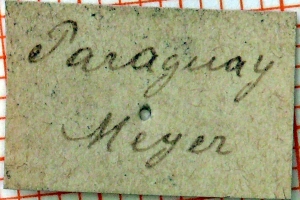 Paraguay
Meyer